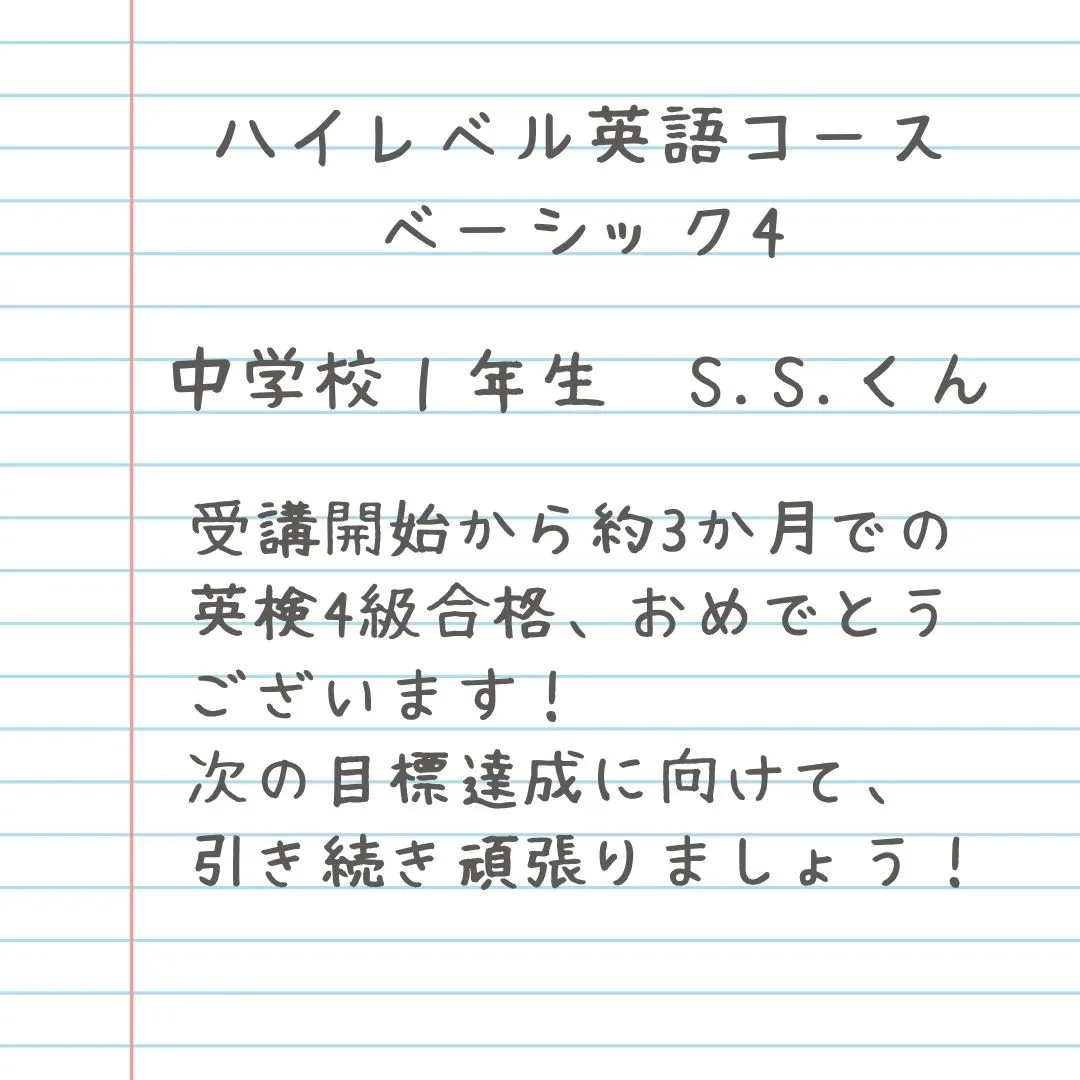 ハイレベル英語コース
ベーシック4
中学校1年生　S.S.くん
受講開始から約3か月での
英検4級合格、おめでとう
ございます！
次の目標達成に向けて、
引き続き頑張りましょう！